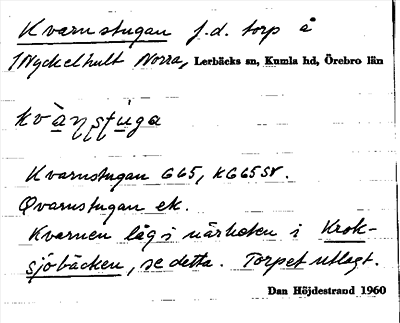 Kvarnstugan f.d. torp å
1 Nyckelhult Norra, Lerbäcks sn, Kumla hd, Örebro län
kvàṇṣṭu̇ga
Kvarnstugan G65, KG65SV.
Qvarnstugan ek.
Kvarnen låg i närheten i Krok-
sjöbäcken, se detta. Torpet utlagt.
Dan Höjdestrand 1960